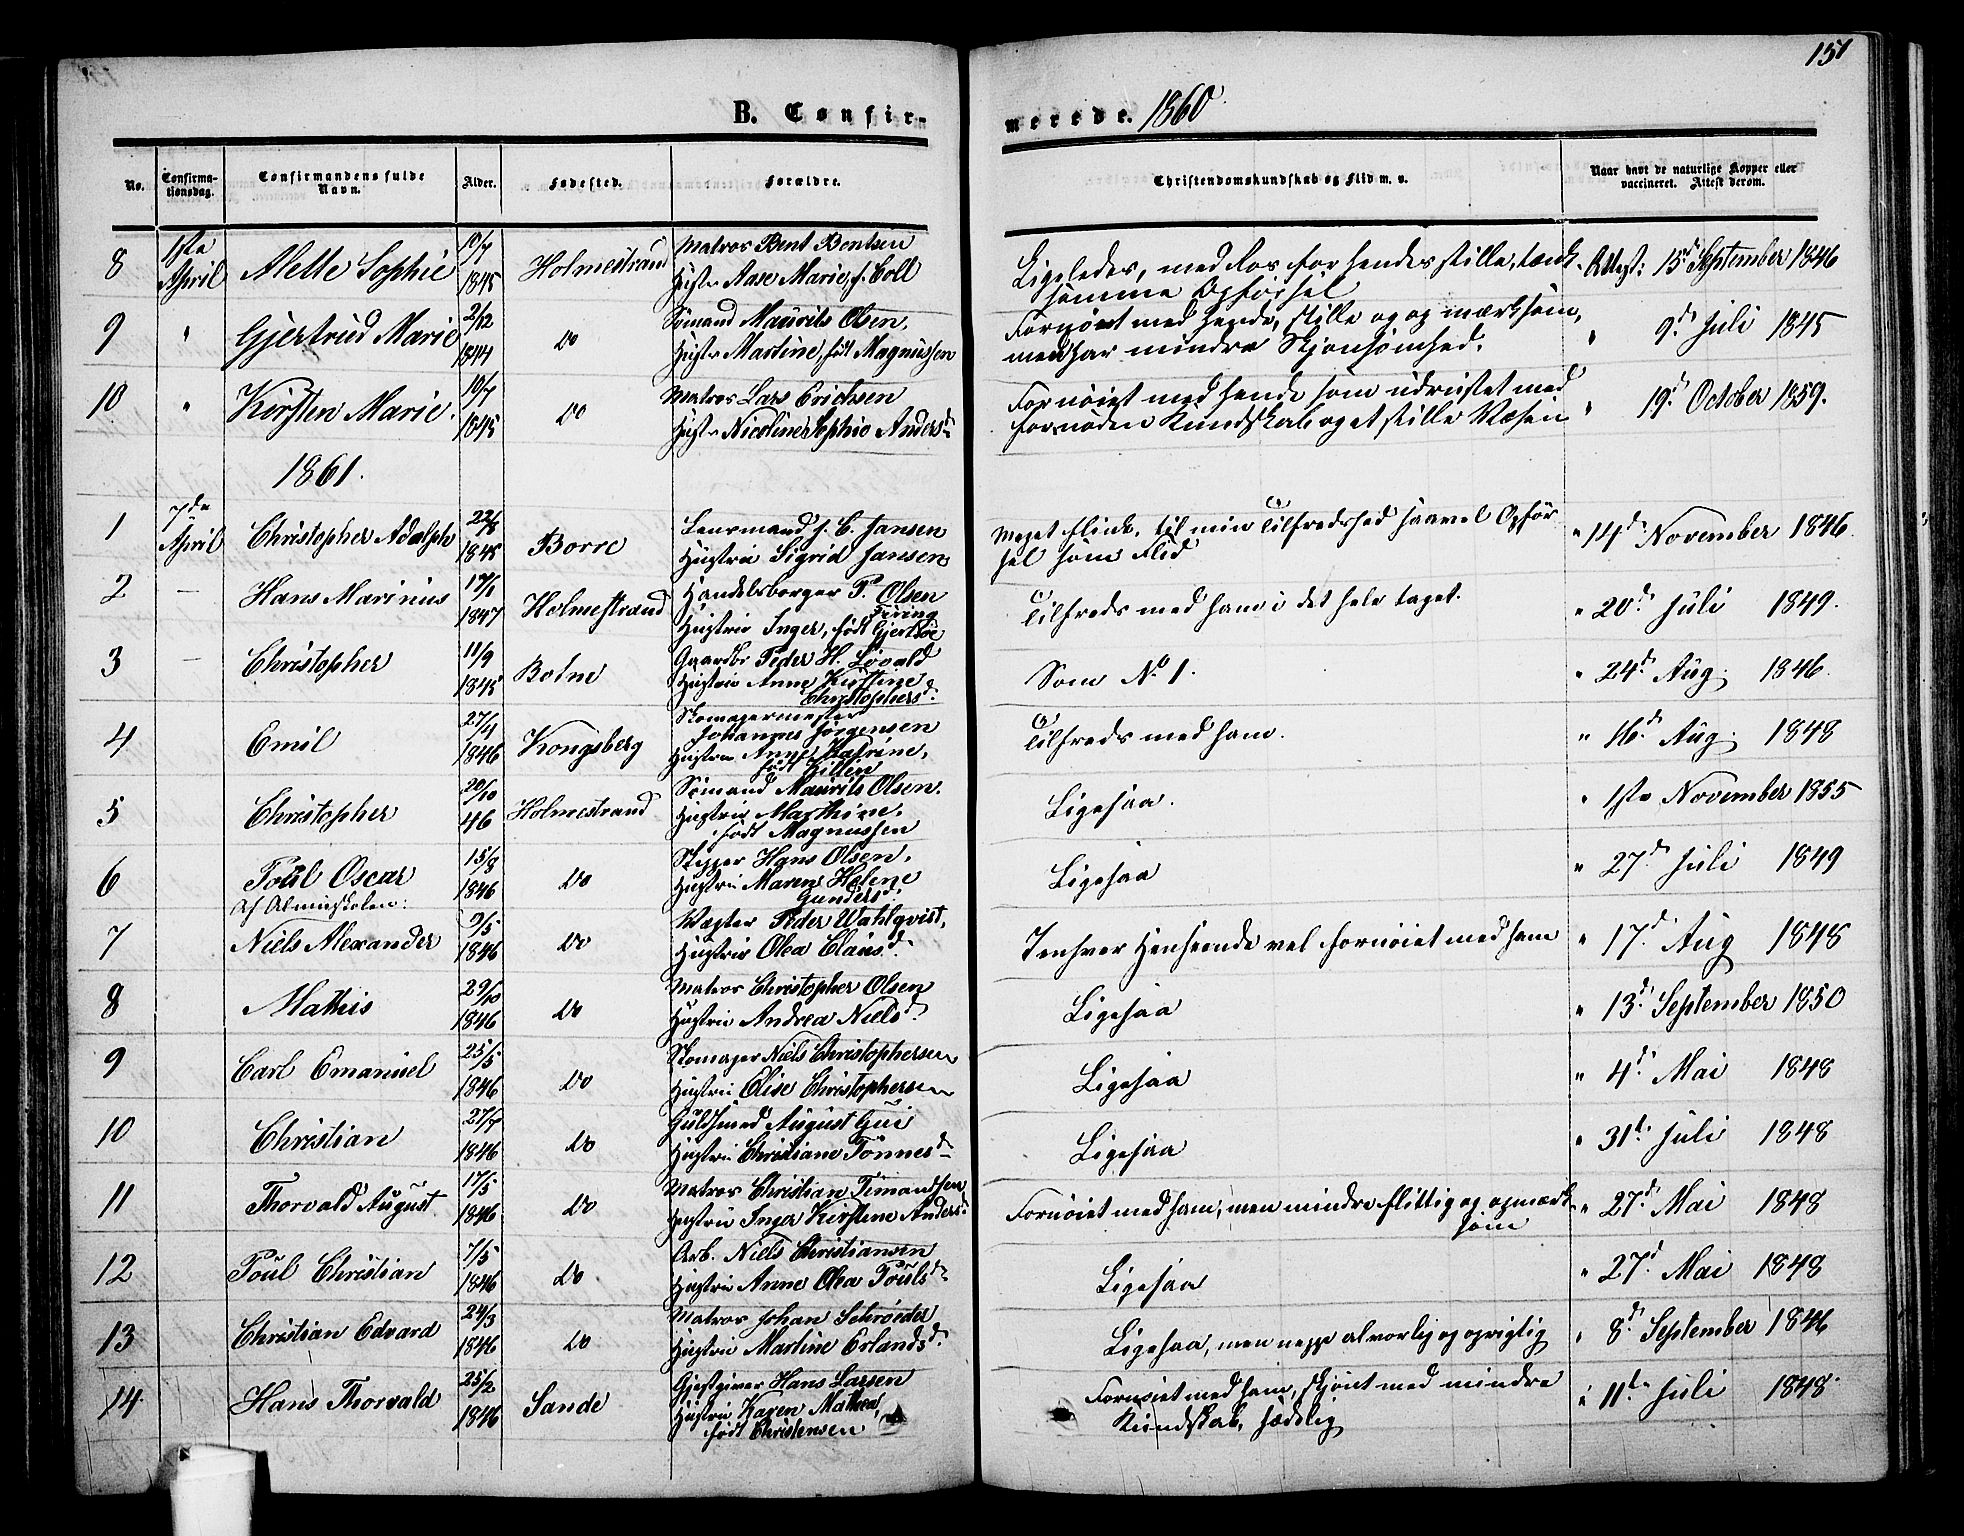 151
B. Confir- merede. 1860.
No. Confirma-
tionsdag. Confirmandens fulde
Navn. Alder. Fødested. Forældre. Christendomskundskab og Flid m. v. Naar havt de naturlige Kopper eller
vaccineret. Attest derom.
8 1ste
April Alette Sophie 10/7
1845 Holmestrand Matros Bent Bentsen
Hustr Aase Marie, f. Coll Ligeledes, med Ros for hendes stille, tænk-
somme Opførsel Attest: 15d September 1846
9 " Gjertrud Marie 2/12
1844 Do Sømand Maurits Olsen,
Hustr Martine, født Magnussen Fornøiet med hende, stille og opmærksom,
med har mindre Skjønsomhed. " 9d Juli 1845
10 " Kirsten Marie. 10/7
1845 Do Matros Lars Erichsen
Hustr Nicoline Sophie Andersd Fornøiet med hende som udrustet med
fornøden Kundskab og et stille Væsen " 19d October 1859.
1861.
1 7de
April Christopher Adolph 22/8
1845 Borre Lensmand J. C. Jansen
Hustru Sigrid Jansen Meget flink, til min Tilfredshed saavel Opfør
sel som Flid " 14d November 1846.
2 — Hans Marinus 1847 Holmestrand Handelsborger P. Olsen
Hustru Inger, født Gjertsøe Tilfreds med ham i det hele taget. " 20d Juli 1849.
3 — Christopher 11/9
1845 Botne Gaardbr Peder H. Løvald
Hustru Anne Kirstine
Christophersd. Som No 1. " 24d Aug. 1846.
4 Emil 27/4
1846 Kongsberg Skomagermester
Johannes Jørgensen
Hustru Anne Katrine,
født Tilfreds med ham. " 16d Aug. 1848
5 Christopher 20/10
46 Holmestrand Sømand Maurits Olsen.
Hustru Marthine.
født Magnussen Ligesaa. " 1ste November 1855
6 Poul Oscar
af Almuskolen: 15/8
1846 Do Skipper Hans Olsen,
Hustru Maren Helene
Gundersd. Ligesaa " 27d Juli 1849
7 Niels Alexander 9/5
1846 Do Vægter Peder Wahlqvist,
Hustru Olea Clausd. I enhver Henseende vel fornøiet med ham " 17d Aug 1848
8 Mathis 29/10
1846 Do Matros Christopher Olsen
Hustru Andrea Nielsd Ligesaa " 13d September 1850
9 Carl Emanuel 25/5
1846 Do Skomager Niels Christophersen
Hustru Elise Christophersen Ligesaa " 4d Mai 1848
10 Christian 27/7
1846 Do Guldsmed August Gui
Hustru Christiane Tønnesd Ligesaa " 31d Juli 1848
11 Thorvald August. 17/5
1846 Do Matros Christian Simandsen
Hustru Inger Kirstine Andersd Fornøiet med ham, men mindre flittig og opmærk-
som " 27d Mai 1848
12 Poul Christian 7/5
1846 Do Arb. Niels Christiansen
Hustru Anne Olea Poulsd Ligesaa " 27d Mai 1848
13 Christian Edvard 24/3
1846 Do Matros Johan Schrøeder
Hustru Martine Erlandsd. Ligesaa, men neppe alvorlig og oprigtig " 8d September 1846
14. Hans Thorvald 25/2
1846 Sande Gjestgiver Hans Larsen
Hustru Karen Mathea,
født Christensen Fornøiet med ham, skjønt med mindre
Kundskab, sædelig " 11d Juli 1848.